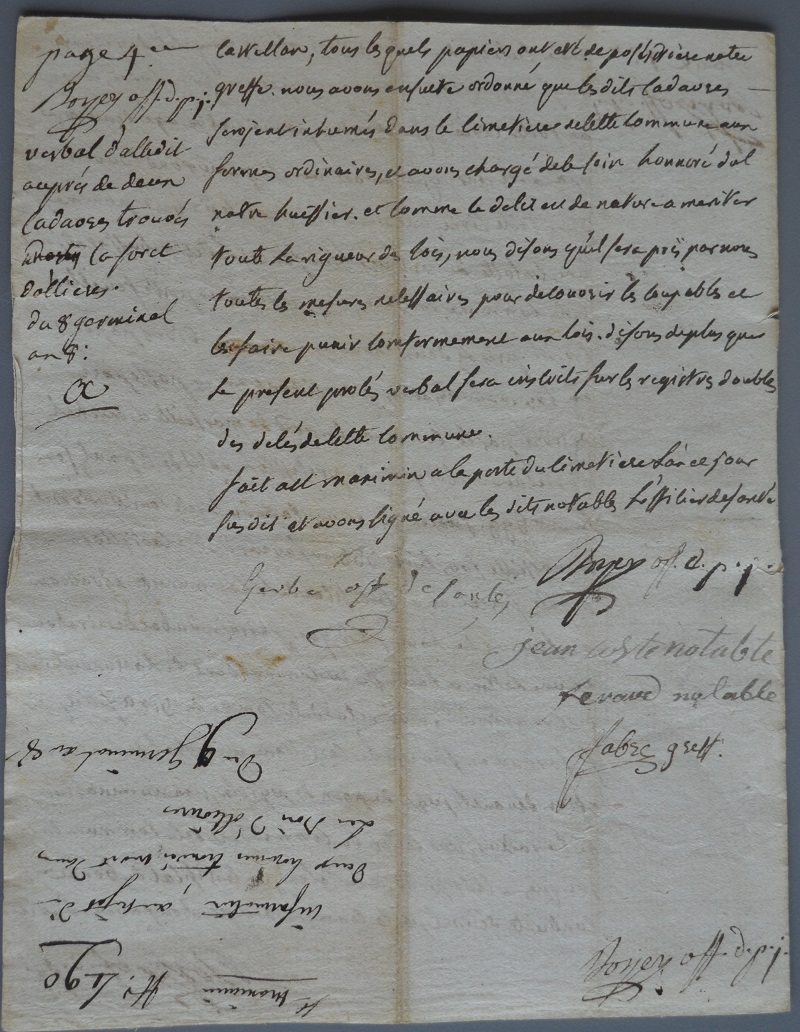 page 4eme
Boyer off. d. p. j.
verbal d'accedit
auprés de deux
Cadavres trouvés
la foret
d'allieres.
du 8 germinal
an 8:
Castellan, tous lesquels papiers ont eté deposés dans notre
greffe. nous avons ensuite ordonné que les dits Cadavres
seroient inhumés dans le Cimetiere de cette Commune aux
formes ordinaires, et avons chargé de ce soin honnoré
notre huissier. et Comme le delit est de nature a meriter
toute la rigueur des lois, nous disons qu'il sera pris par nous
toutes les mesures necessaires pour decouvrir les Coupables et
les faire punir Conformement aux lois. disons de plus que
Le present procés verbal sera inscrits sur les registres doubles
des decés de cette Commune.
fait a St maximin a la porte du Cimetiere L'an et jour
susdit et avons signé avec les dits notables L'officier de santé
Boyer off. d. p. j.
off de santé,
jean coste notable
notable
fabre greff.
Boyer off. d. p. j.
St Maximin
N° 490
information, au sujet de
deux hommes trouvés mort dans
Les Bois D'allieres
Du 9 Germinal an 8